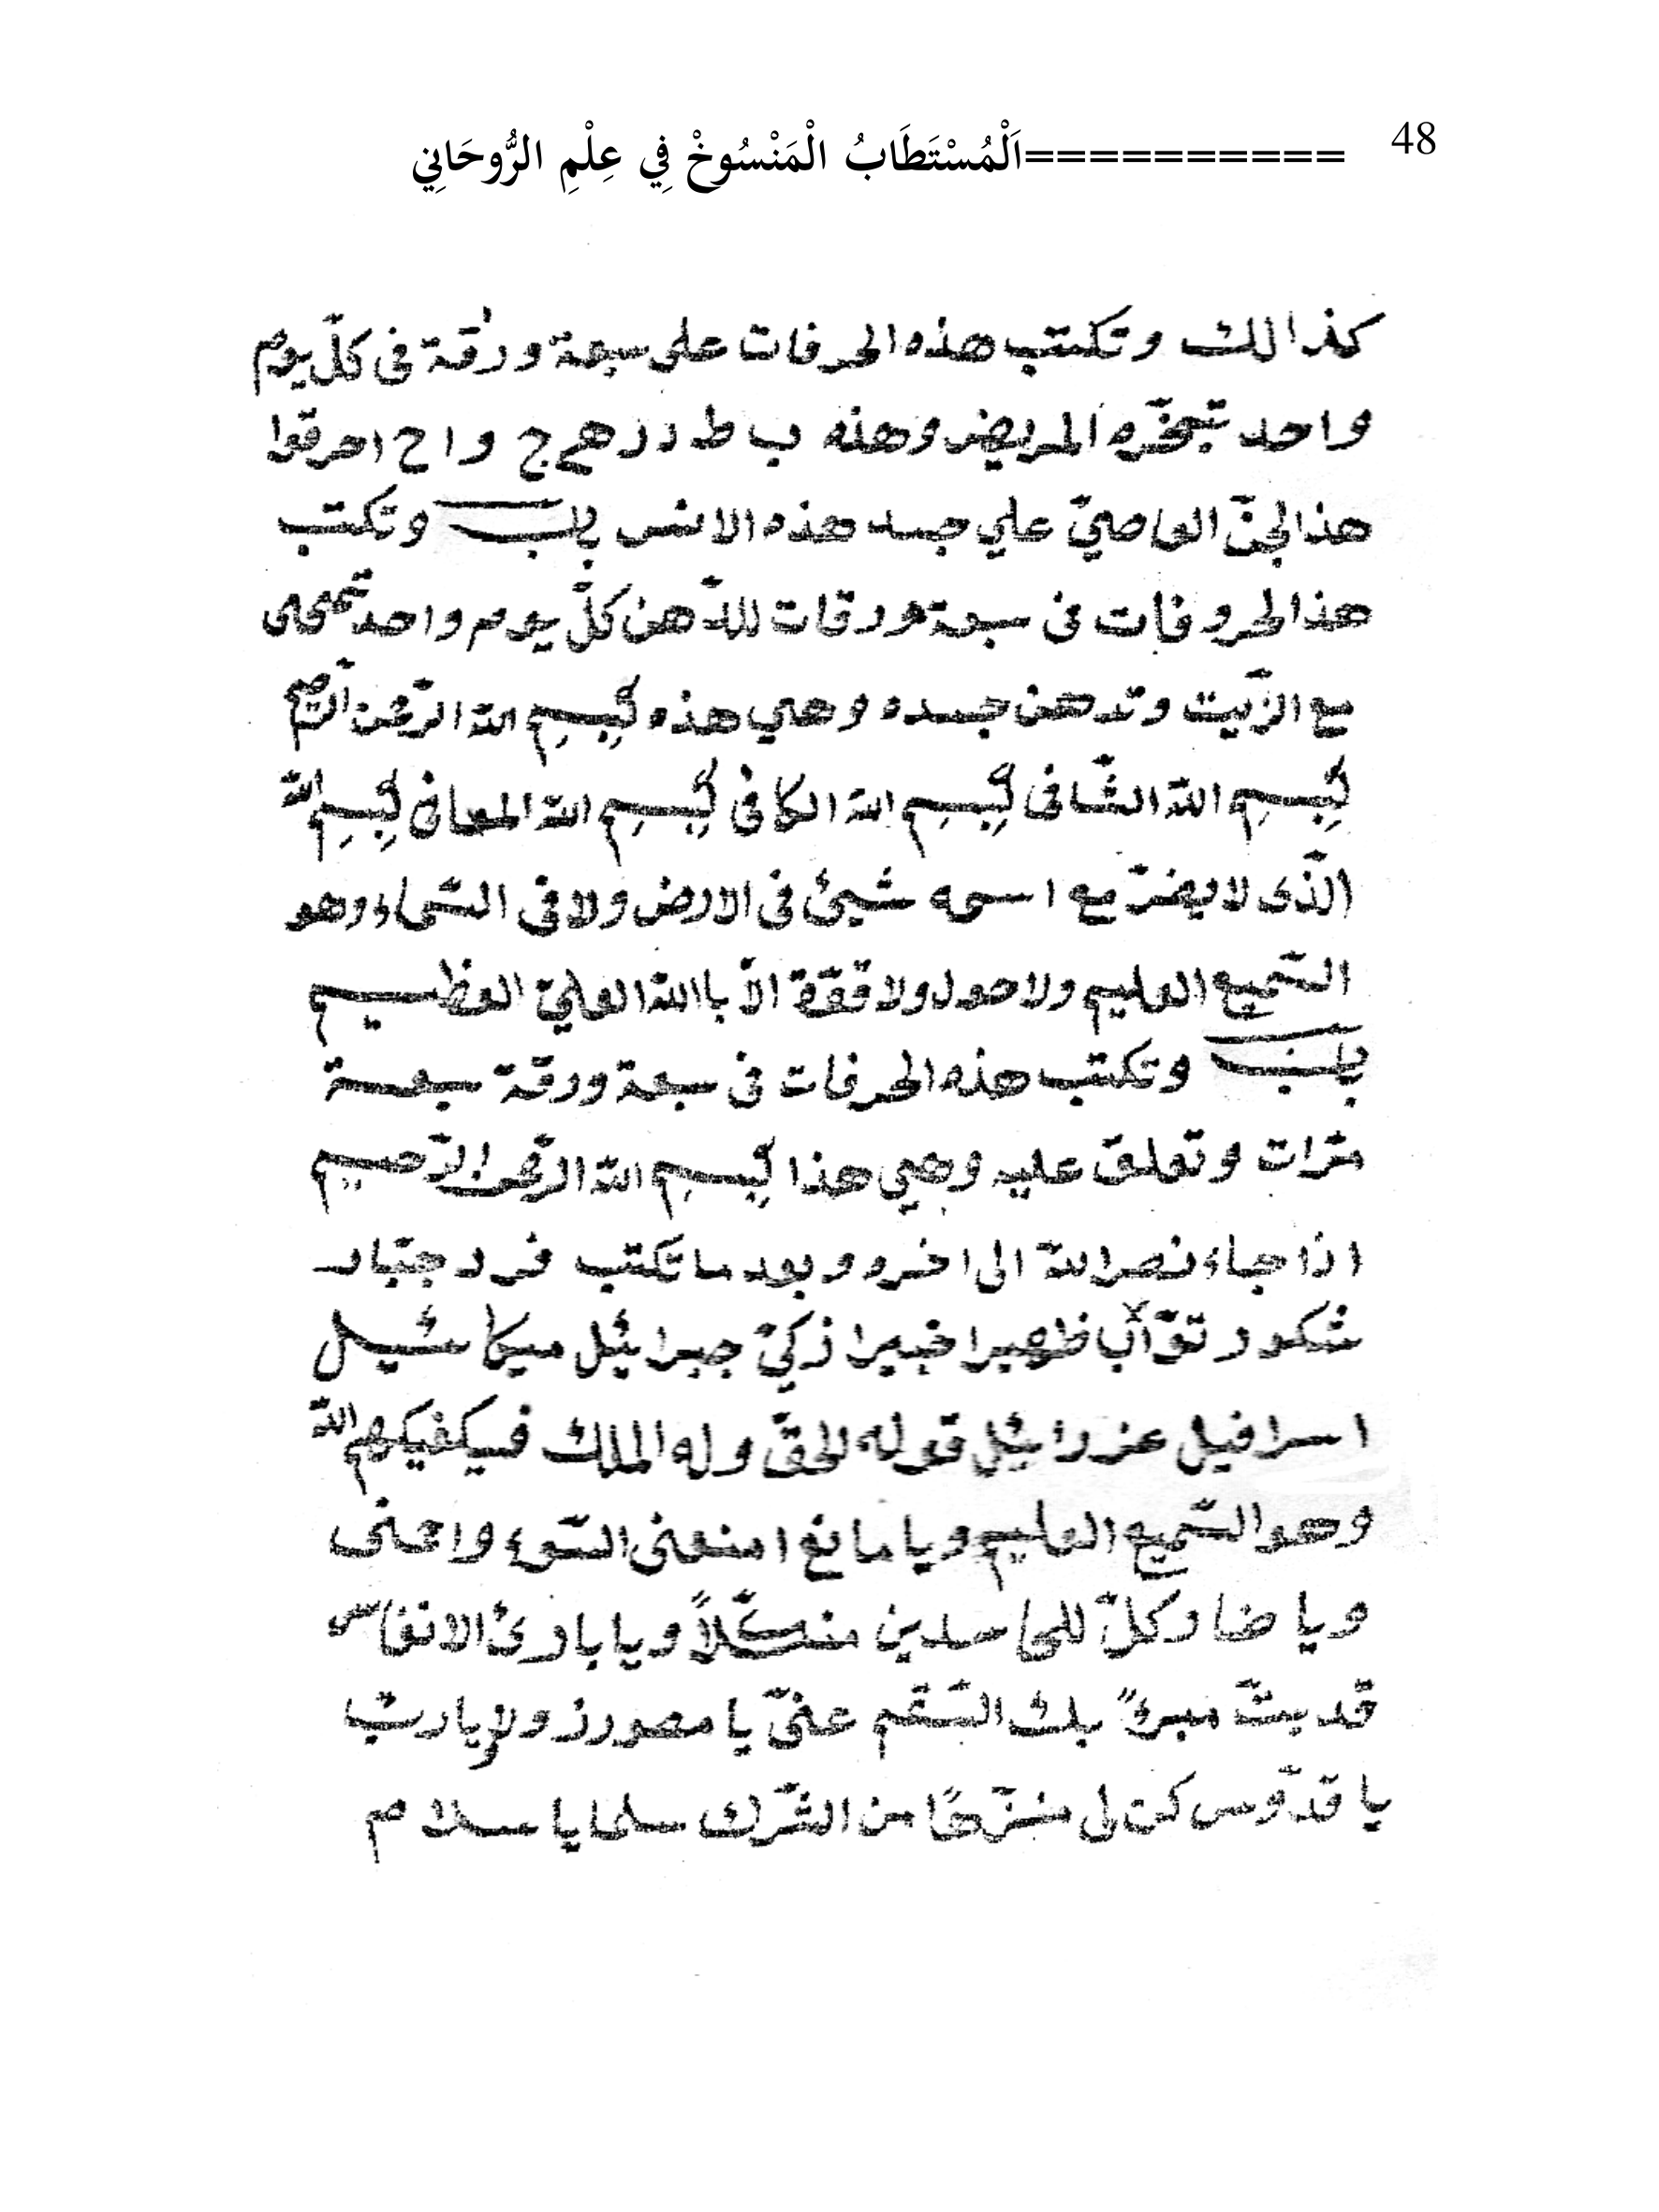 48
==========اَلْمُسْتَطَابُ الْمَنْسُوخْ فِي عِلْمِ الرُّوحَانِي
كذالك وتكتب هذه الحرفات على سبعة ورقة فى كلّ يوم
واحد تبخّره المريض وهذه ب ط د ز هج ج واح احرقوا
هذالجنّ العاصيّ علي جسد هذه الانس وتكتب
هذالحروفات فى سبعة ورقات للدّهن كلّ يوم واحد تمحى
مع الزّيت وتدهن جسده وهي هذه بِسِمِ اللّه الرّحمن الرّحيم
بِسِمِ اللّه الشّافى بِسِمِ اللّه الكافى بِسِمِ اللّه المعافى بِسِمِ اللّه
الّذى لا يضرّ مع اسمه شيئ فى الارض ولا فى السّماء وهو
السّميع العليم ولا حول ولا قوّة الاّ باللّه العليّ العظيم
وتكتب هذه الحرفات فى سبعة ورقة سبعة
مرّات وتعلق عليه وهي هذا بِسِمِ اللّه الرّحمن الرّحيم
اذا جاء نصر اللّه الى اخره وبعد ما تكتب فرد جبّار
شكور توّاب ظهيرا خبيرا زكيّ جبرائيل ميكائيل
اسرافيل عزرائيل قوله الحقّ وله الملك فسيكفيكهم اللّه
وهو السّميع العليم ويا مانع امنعنى السّوء واحمنى
ويا ضار كلّ للحاسدين منكّلاً ويا بارئ الانفاس
قد بتّ مبرءً بك السّقم عنّى يا مصور
يا قدّوس كن لى منزّها من الشّرك سلما يا سلام